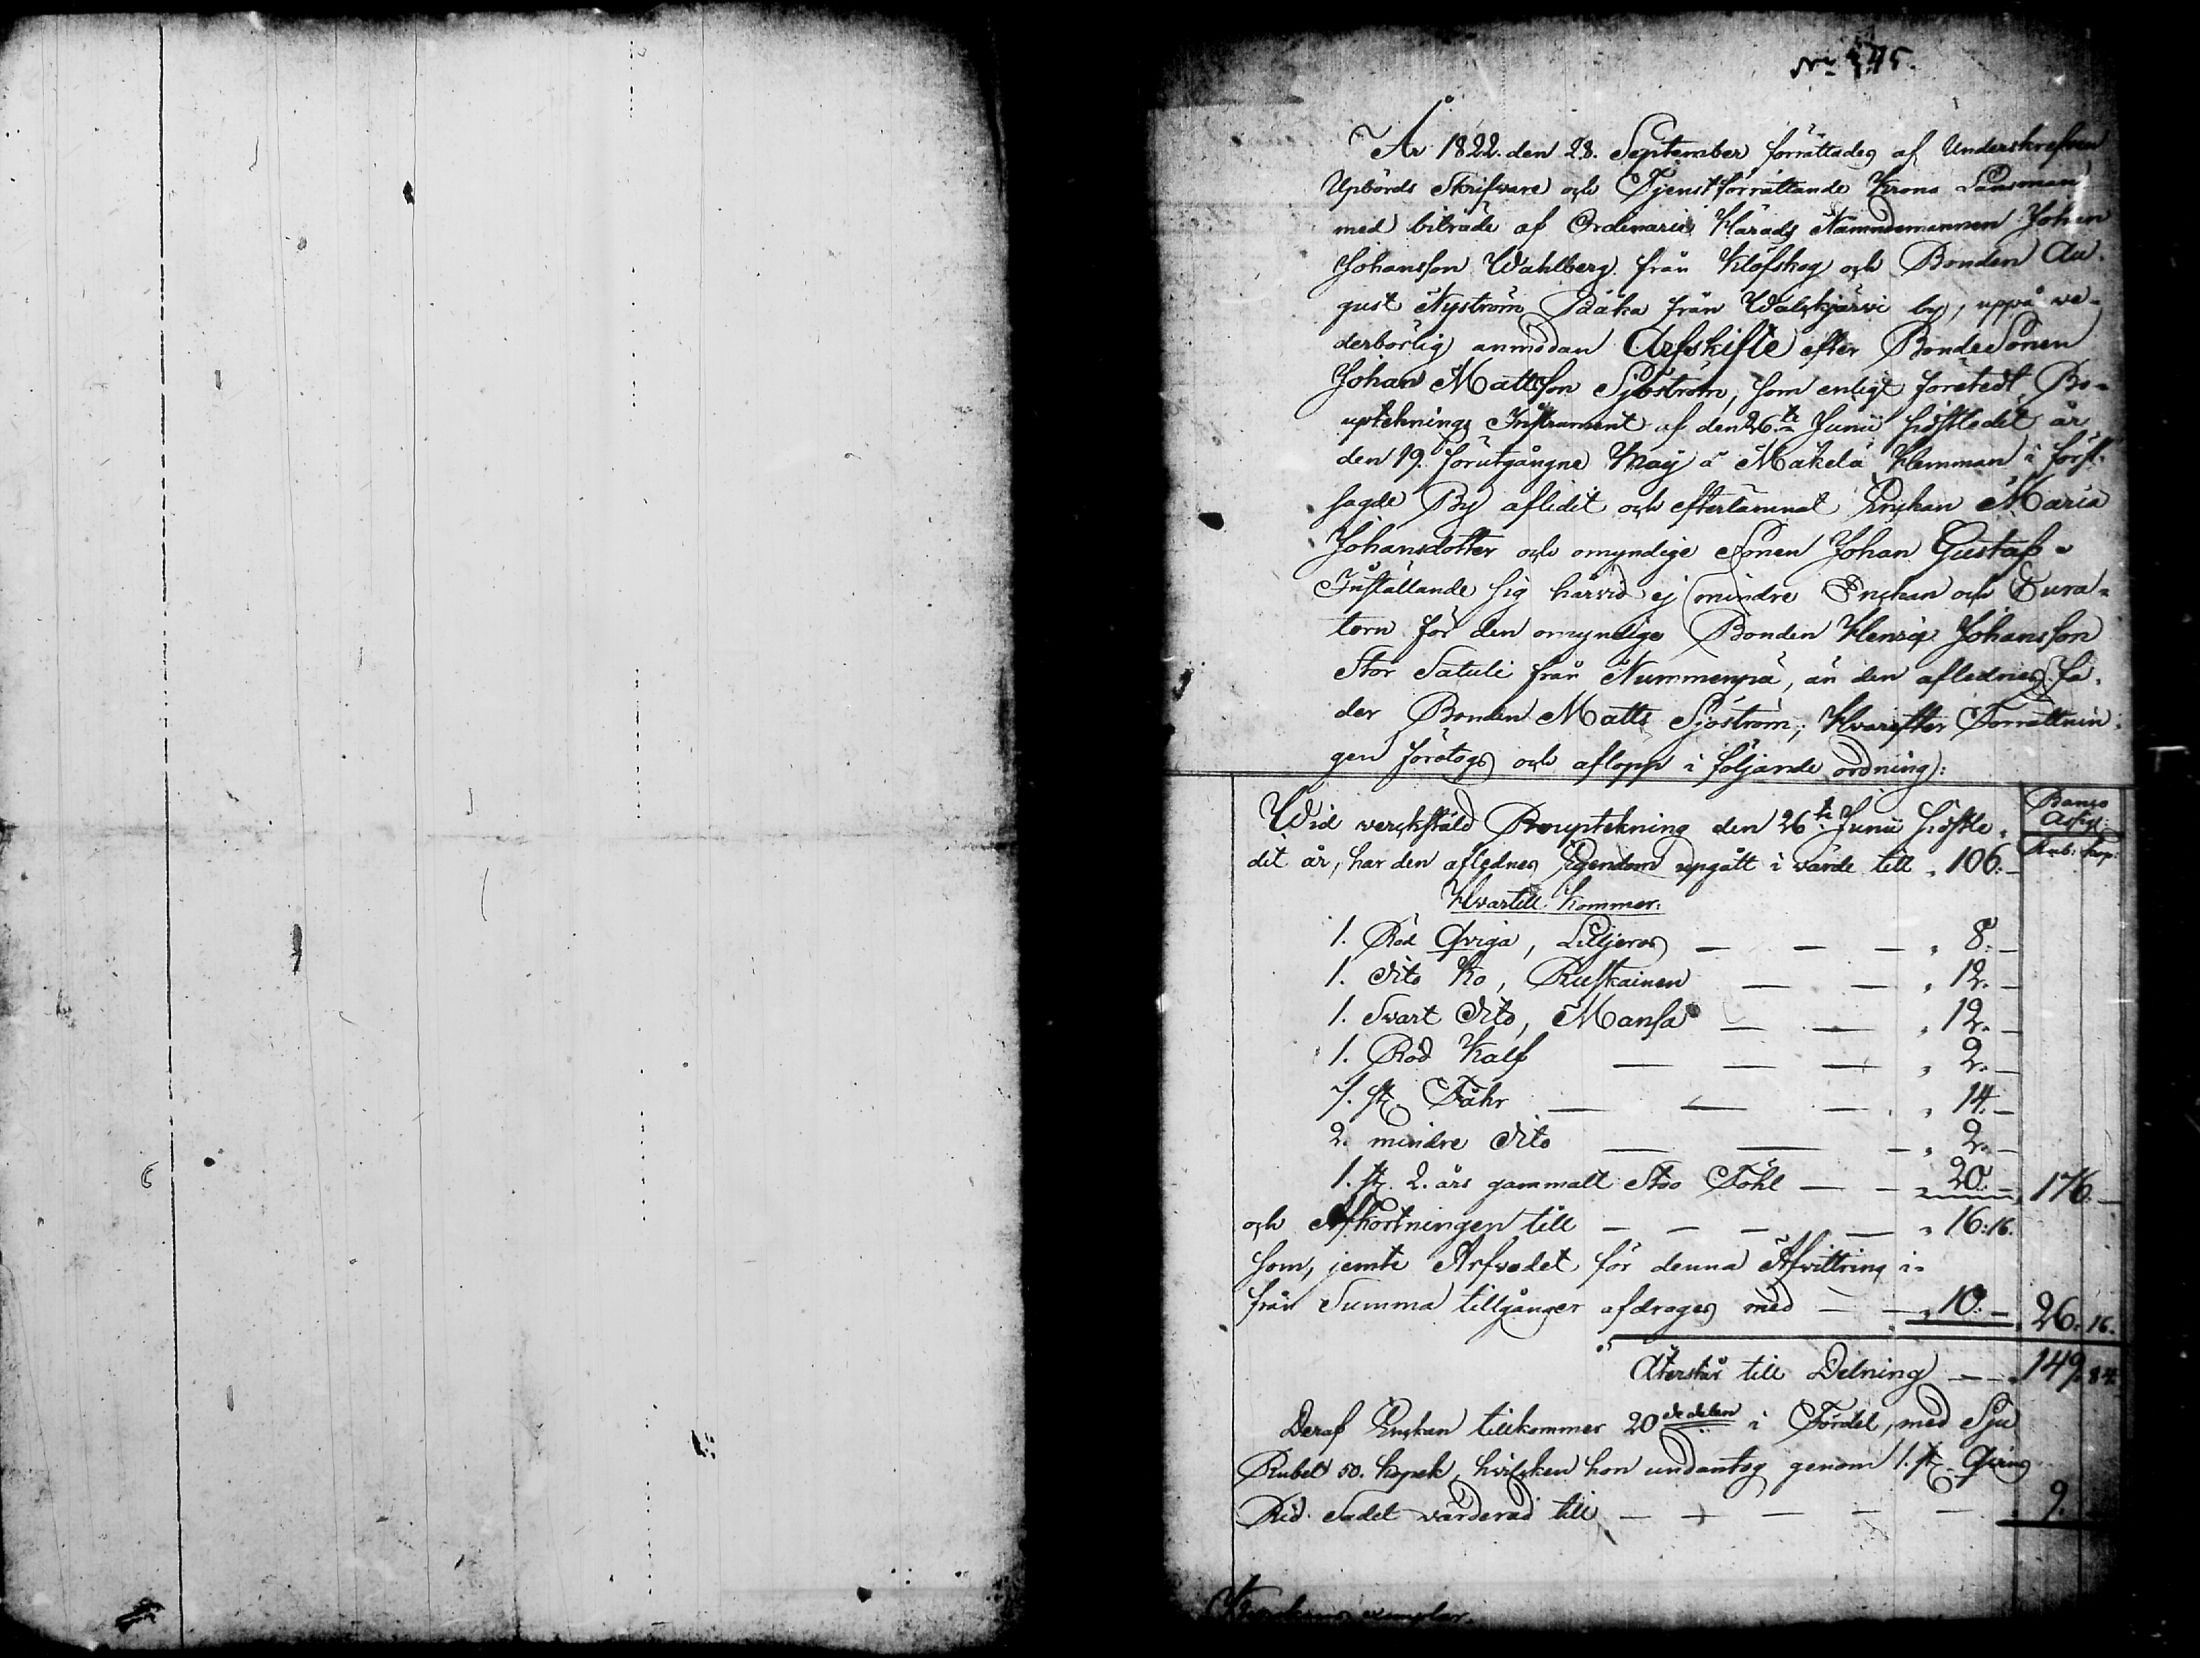 År 1822. den 28. September förrättades af Underskrefven
Upbörds Skrifvare och Tjenstförrättande Krono Länsman
med biträde af Ordinarie Härads Nämndemannen Johan
Johansson Wahlberg från Klöfskog och Bonden Au-
gust Nyström Pääka från Walkjärvi by, uppå ve-
derbörlig anmodan Arfskifte efter BondeSonen
Johan Mattsson Sjöström, som enligt företedt Bo-
upteknings Instrument af den 26te Junii sistledit år
den 19. förutgångne Maij å Mäkelä Hemman i först-
sagde By aflidit och efterlämnat Enkan Maria
Johansdotter och omyndige Sonen Johan Gustaf.
Inställande sig härvid ej mindre Enkan och Cura-
torn för den omyndige Bonden Henric Johansson
Stor Satuli från Nummenpä, än den aflednes Fa-
der Bonden Matts Sjöström; Hvarefter Förrättnin-
gen företogs och aflopp i följande ordning:
Banco Assign:
Rub: kop:
Wid verkstäld Bouptekning den 26te Junii sistle-
dit år, har den aflednes Egendom upgått i värde till " 106:-
Hvartill kommer:
1. Röd Qviga, Liljeros — — — " 8:-
1. dito Ko, Ruskainen — — " 12.-
1. Svart dito, Mansa — — " 12.-
1. Röd Kalf — — — " 2.-
7. st. Fåhr — — — " 14.-
2. mindre dito — — — " 2.-
1. st. 2. års gammalt Sto Föhl — — " 20.- 176.-
och Afkortningen till — — — — " 16:16.
som, jemte Arfvodet för denna Afvittring i-
från Summa tillgånger afdrages med — — " 10.- 26.16.
Återstår till Delning — — 149.84.
Deraf Enkan tillkommer 20de delen i Fördel, med Sju
Rubel 50. kopek, hvilken hon undantog genom 1. st.
Rid Sadel värderad till — — — — — 9.